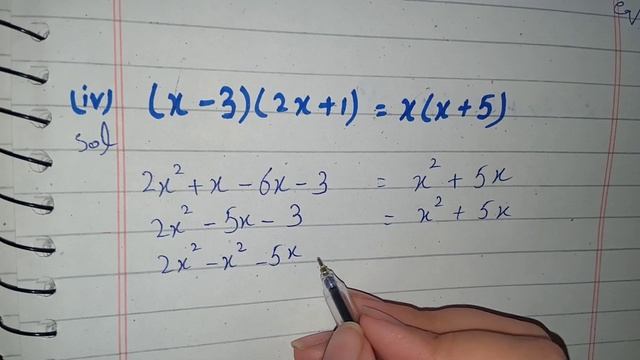 (iv) (x - 3)(2x + 1) = x(x + 5)
Sol
2x² + x - 6x - 3 = x² + 5x
2x² - 5x - 3 = x² + 5x
2x² - x² - 5x